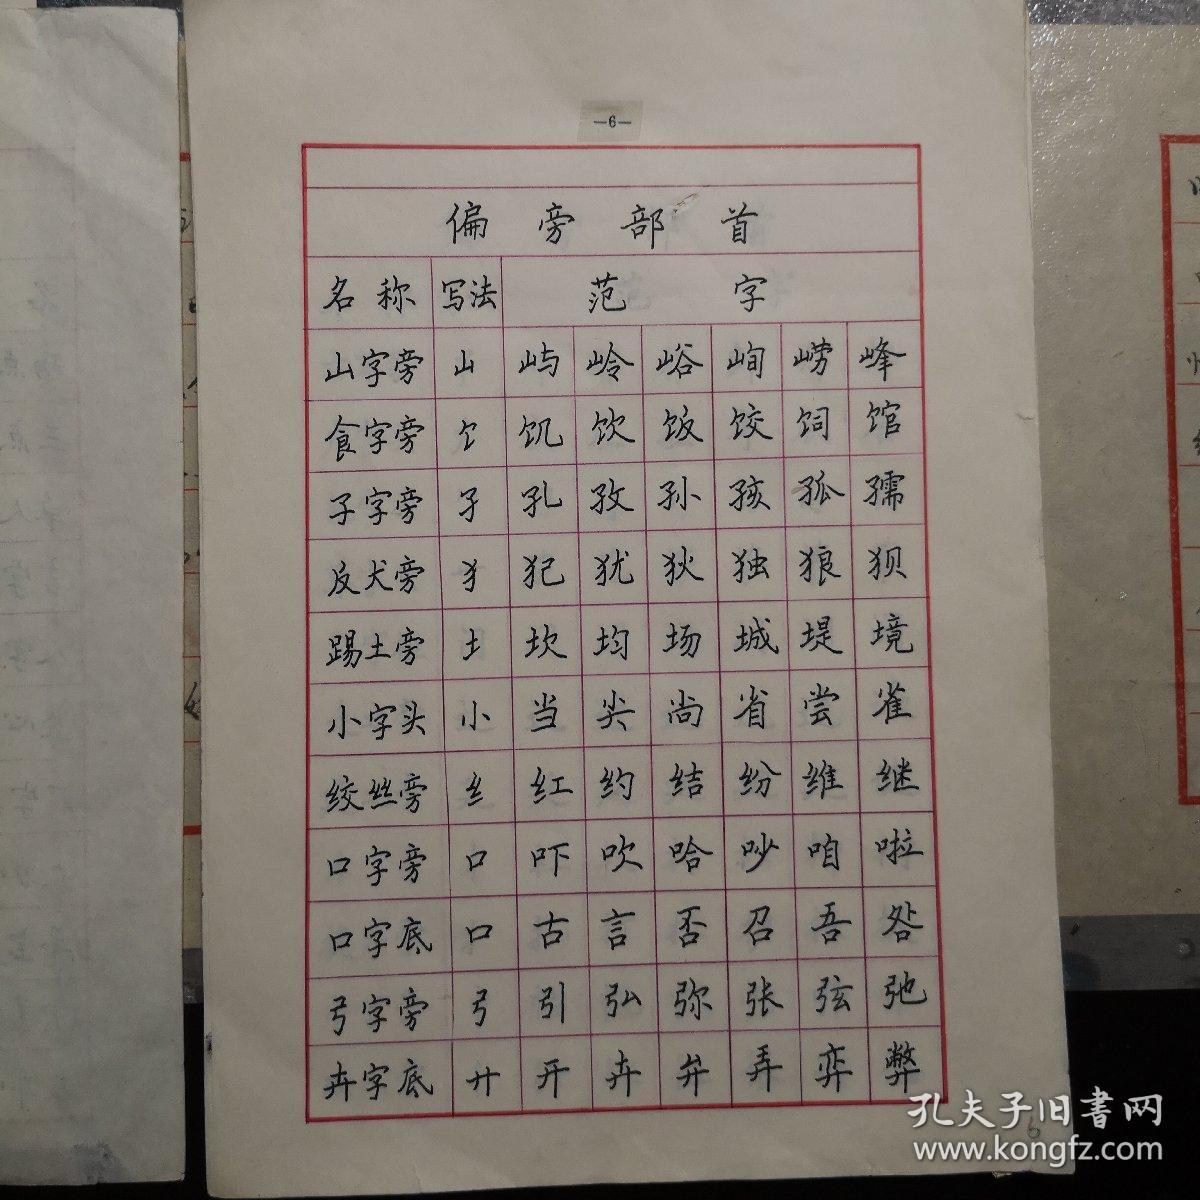 —6—
偏旁部首
名称 写法 范字
山字旁 山 屿 岭 峪 峋 崂 峰
食字旁 饣 饥 饮 饭 饺 饲 馆
子字旁 子 孔 孜 孙 孩 孤 孺
反犬旁 犭 犯 犹 狄 独 狼 狈
踢土旁 土 坎 均 场 城 堤 境
小字头 小 当 尖 尚 省 尝 雀
绞丝旁 纟 红 约 结 纷 维 继
口字旁 口 吓 吹 哈 吵 咱 啦
口字底 口 古 言 否 召 吾 咎
弓字旁 弓 引 弘 弥 张 弦 弛
卉字底 廾 开 卉 弁 弄 弈 弊
6
孔夫子旧书网
www.kongfz.com